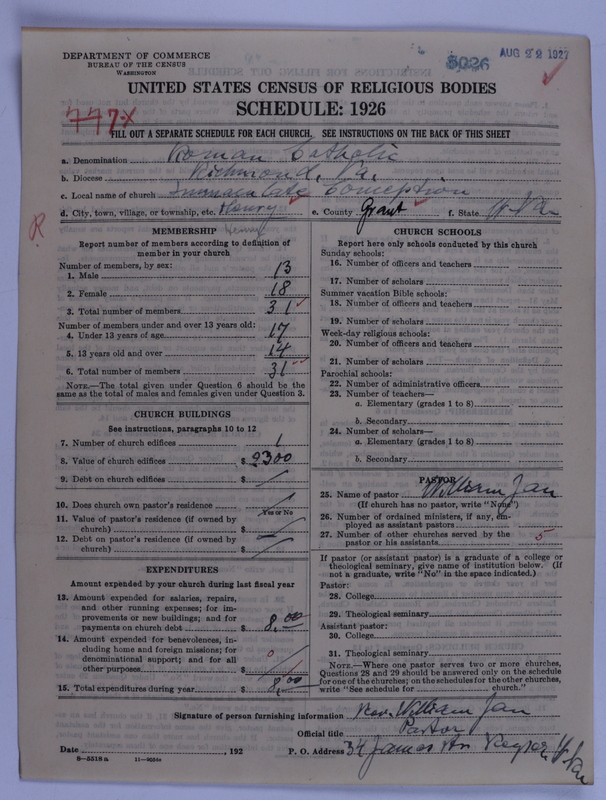 DEPARTMENT OF COMMERCE
BUREAU OF THE CENSUS
WASHINGTON
8026
AUG 22 1927
UNITED STATES CENSUS OF RELIGIOUS BODIES
SCHEDULE: 1926
77x
FILL OUT A SEPARATE SCHEDULE FOR EACH CHURCH. SEE INSTRUCTIONS ON THE BACK OF THIS SHEET
a. Denomination Roman Catholic
b. Diocese Richmond, Va.
c. Local name of church Immaculate Conception
d. City, town, village, or township, etc. Henry e. County Grant f. State W Va
R
MEMBERSHIP Henry
Report number of members according to definition of
member in your church
Number of members, by sex:
1. Male 13
2. Female 18
3. Total number of members 31
Number of members under and over 13 years old:
4. Under 13 years of age 17
5. 13 years old and over 14
6. Total number of members 31
NOTE.—The total given under Question 6 should be the
same as the total of males and females given under Question 3.
CHURCH BUILDINGS
See instructions, paragraphs 10 to 12
7. Number of church edifices 1
8. Value of church edifices $ 2300
9. Debt on church edifices $
10. Does church own pastor's residence
Yes or No
11. Value of pastor's residence (if owned by
church) $
12. Debt on pastor's residence (if owned by
church) $
EXPENDITURES
Amount expended by your church during last fiscal year
13. Amount expended for salaries, repairs,
and other running expenses; for im-
provements or new buildings; and for
payments on church debt $ 8.00
14. Amount expended for benevolences, in-
cluding home and foreign missions; for
denominational support; and for all
other purposes $ 0
15. Total expenditures during year $ 8.00
CHURCH SCHOOLS
Report here only schools conducted by this church
Sunday schools:
16. Number of officers and teachers
17. Number of scholars
Summer vacation Bible schools:
18. Number of officers and teachers
19. Number of scholars
Week-day religious schools:
20. Number of officers and teachers
21. Number of scholars
Parochial schools:
22. Number of administrative officers
23. Number of teachers—
a. Elementary (grades 1 to 8)
b. Secondary
24. Number of scholars—
a. Elementary (grades 1 to 8)
b. Secondary
PASTOR
25. Name of pastor William Jan
(If church has no pastor, write "None")
26. Number of ordained ministers, if any, em-
ployed as assistant pastors
27. Number of other churches served by the
pastor or his assistants 5
If pastor (or assistant pastor) is a graduate of a college or
theological seminary, give name of institution below. (If
not a graduate, write "No" in the space indicated.)
Pastor:
28. College
29. Theological seminary
Assistant pastor:
30. College
31. Theological seminary
NOTE.—Where one pastor serves two or more churches,
Questions 28 and 29 should be answered only on the schedule
for one of the churches; on the schedules for the other churches,
write "See schedule for church."
Signature of person furnishing information Rev. William Jan
Official title Pastor
Date , 192 P. O. Address 34 James Str Keyser W Va
8—5518 a 11—9054a